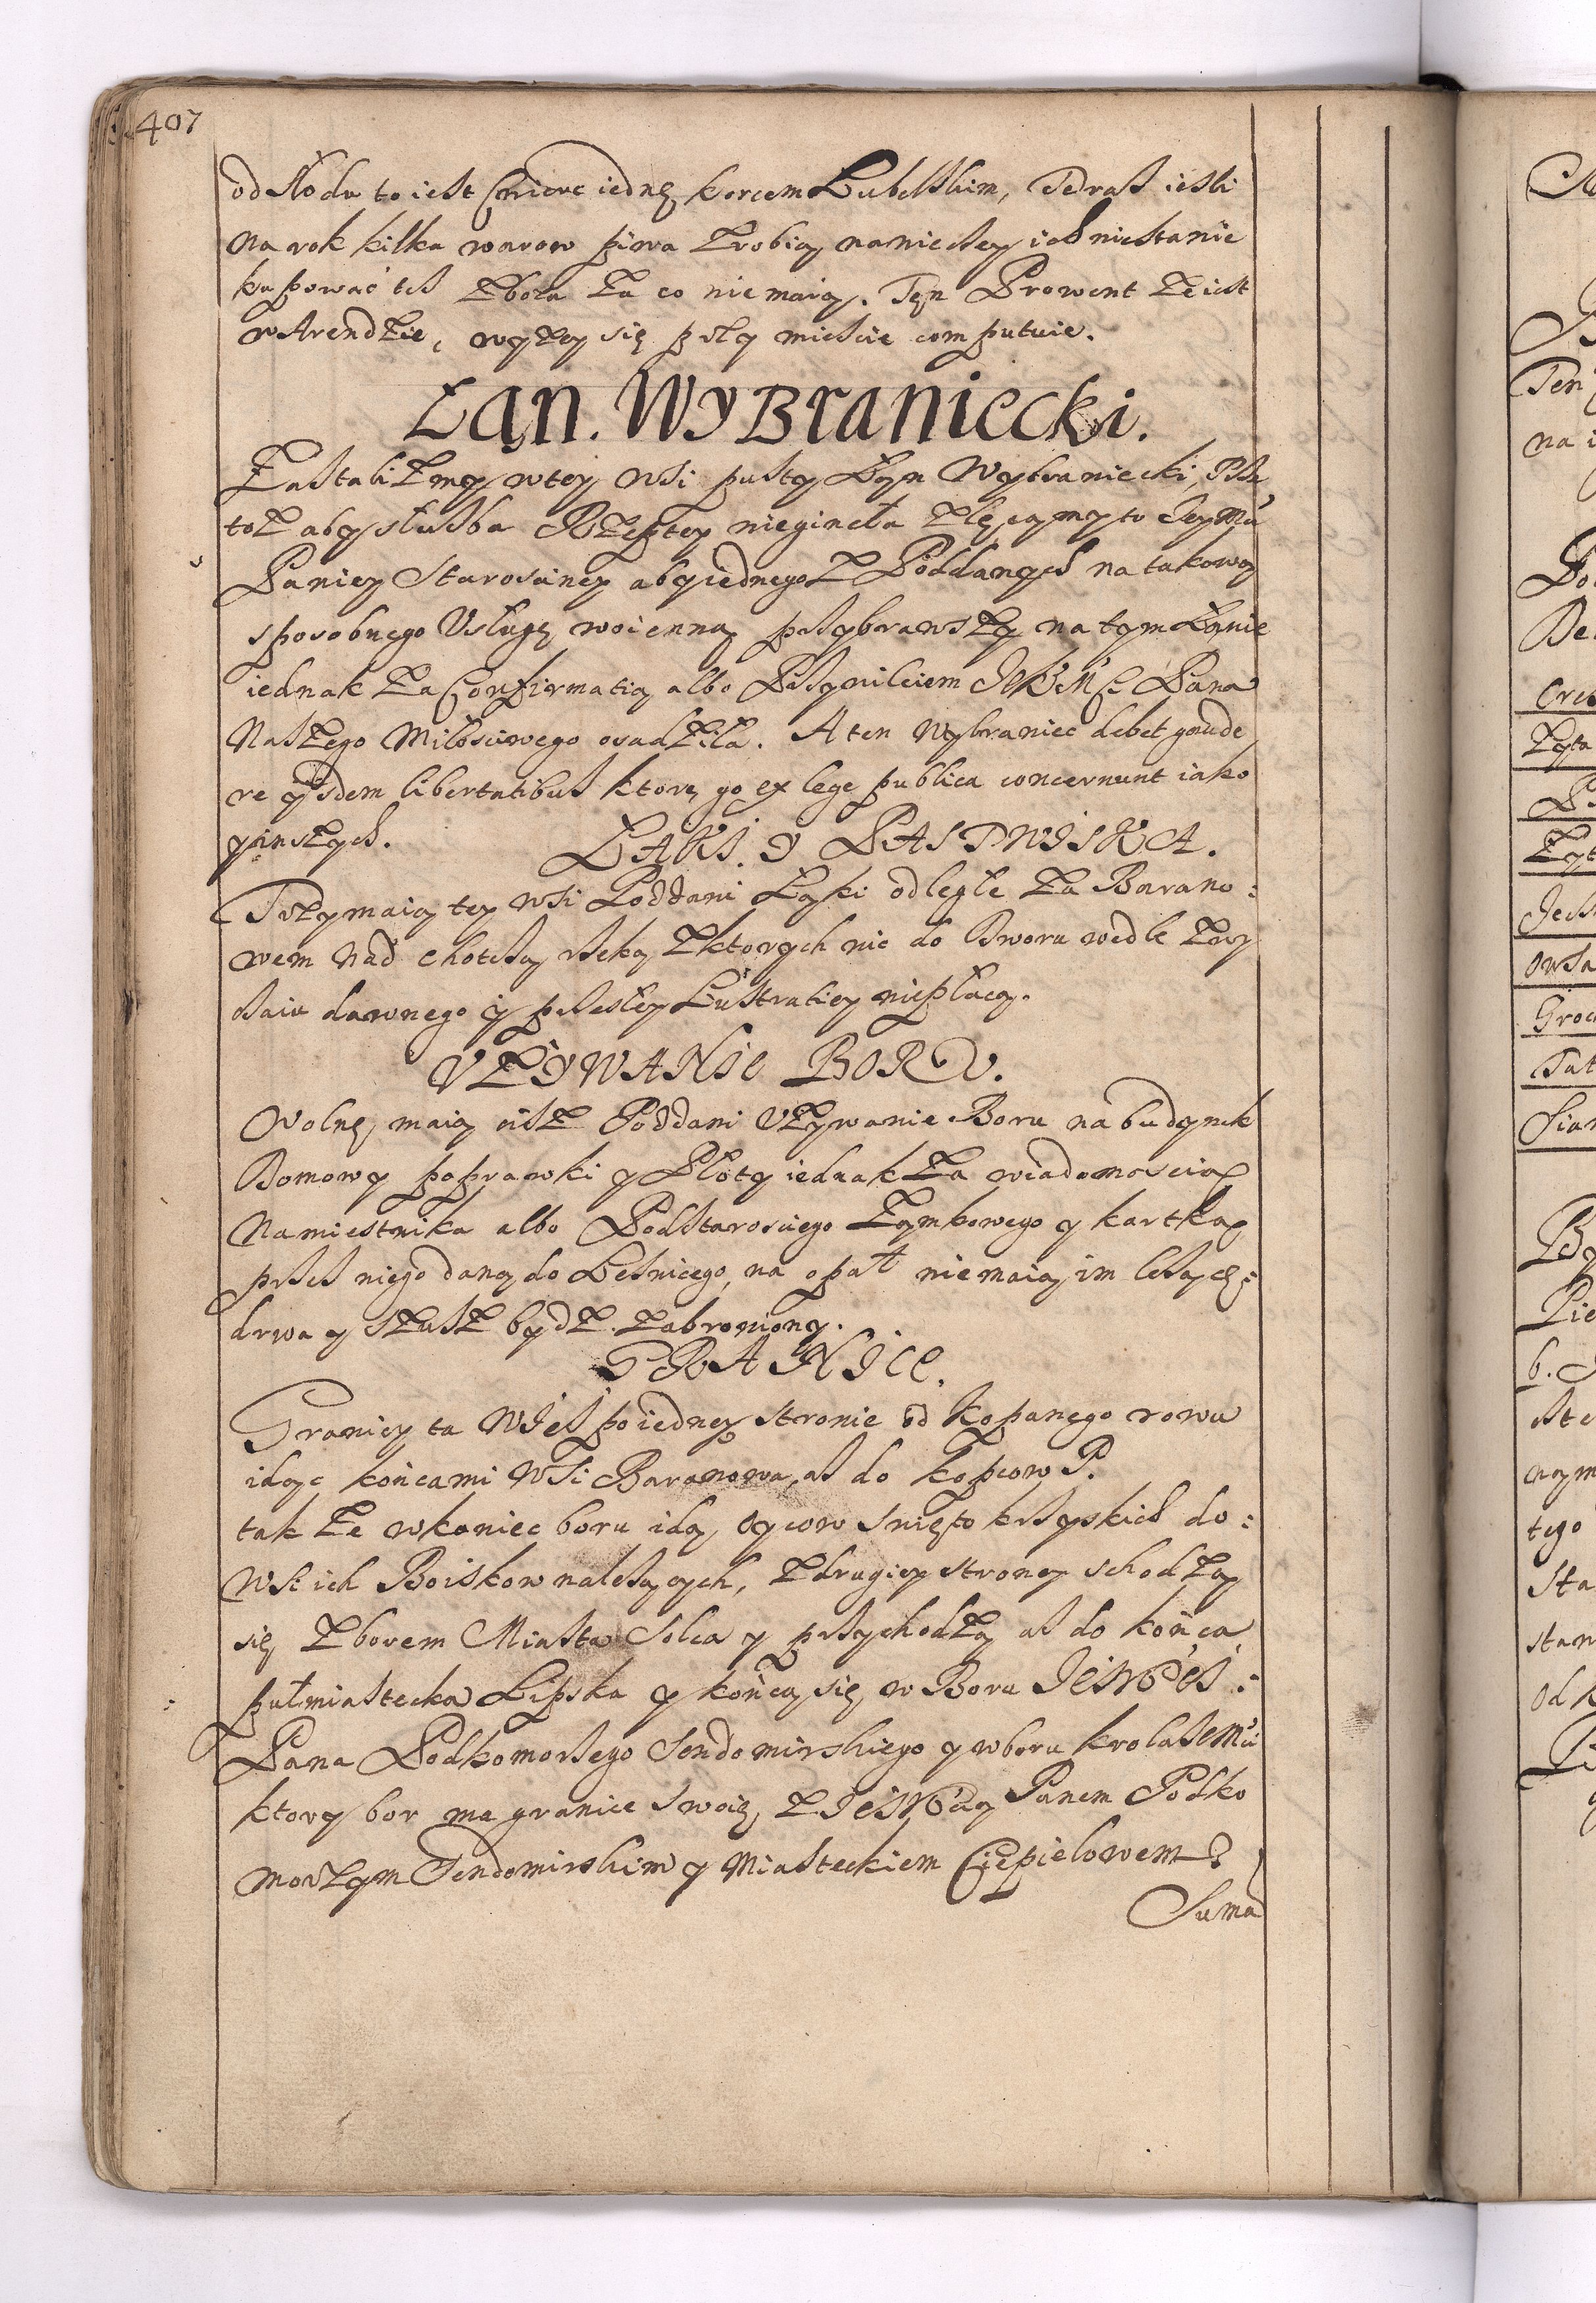 407
od słodu to iest Cwierc iednę korcem Lubelskim, Teraz iesli
na rok kilka warow piwa zrobią nawięcey ich niestanie
kupować też zboża za co nie maią. Ten Prowent że iest
w Arendzie, wyżey się przy mieście computuie.
Łan. WyBraniecki.
Zastaliżmy w tey wsi pusty Łan Wybraniecki, Prze
toż aby służba Rzeptey niegineła zlecamy to Jeymci
Paniey Starosciney aby iednego z Poddanych na takową
sposobnego Usługę woienną przybrawszy na tym Łanie
iednak za Confirmatią albo Przywileiem JeKrMści Pana
Naszego Miłosciwego osadziła. A ten Wybraniec debet gaude
re ijsdem libertatibus ktore go ex lege publica concernunt iako
y inszych.
ŁĄKI. Y PASTWISKA.
Trzymaią tey wsi Poddani Łąki odległe za Barano:
wem nad Chotczą rzeką z ktorych nic do Dworu wedle zwy
czaiu dawnego y przeszłey Lustratiey niepłacą.
UŻYWANIE BORU.
Wolne maią ciż Poddani Używanie Boru na budynek
Domowy poprawki y Płoty iednak za wiadomoscią
Namiestnika albo Podstarosciego Zamkowego y kartką
przez niego daną do Lesnicego, na opał niemaią im leżące:
drwa y szusz bydz zabroniony.
GRANICE.
Graniczy ta Wieś po iedney stronie od kopanego rowu
idąc końcami wsi Baranowa, aż do kopcow P.
także w koniec boru idą Oycow Swięto krzyskich do:
wsi ich Boiskow należących, z drugiey strony schodzą
się z borem Miasta Solca y przychodzą aż do końca
pułmiastecka Lipska y kończą się w Boru
Pana Podkomorzego Sendomirskiego y w boru krola Jemci
ktory bor ma granice swoie, z Panem Podko
morzym Sendomirskim y Miasteckiem Ciepielowem
Suma